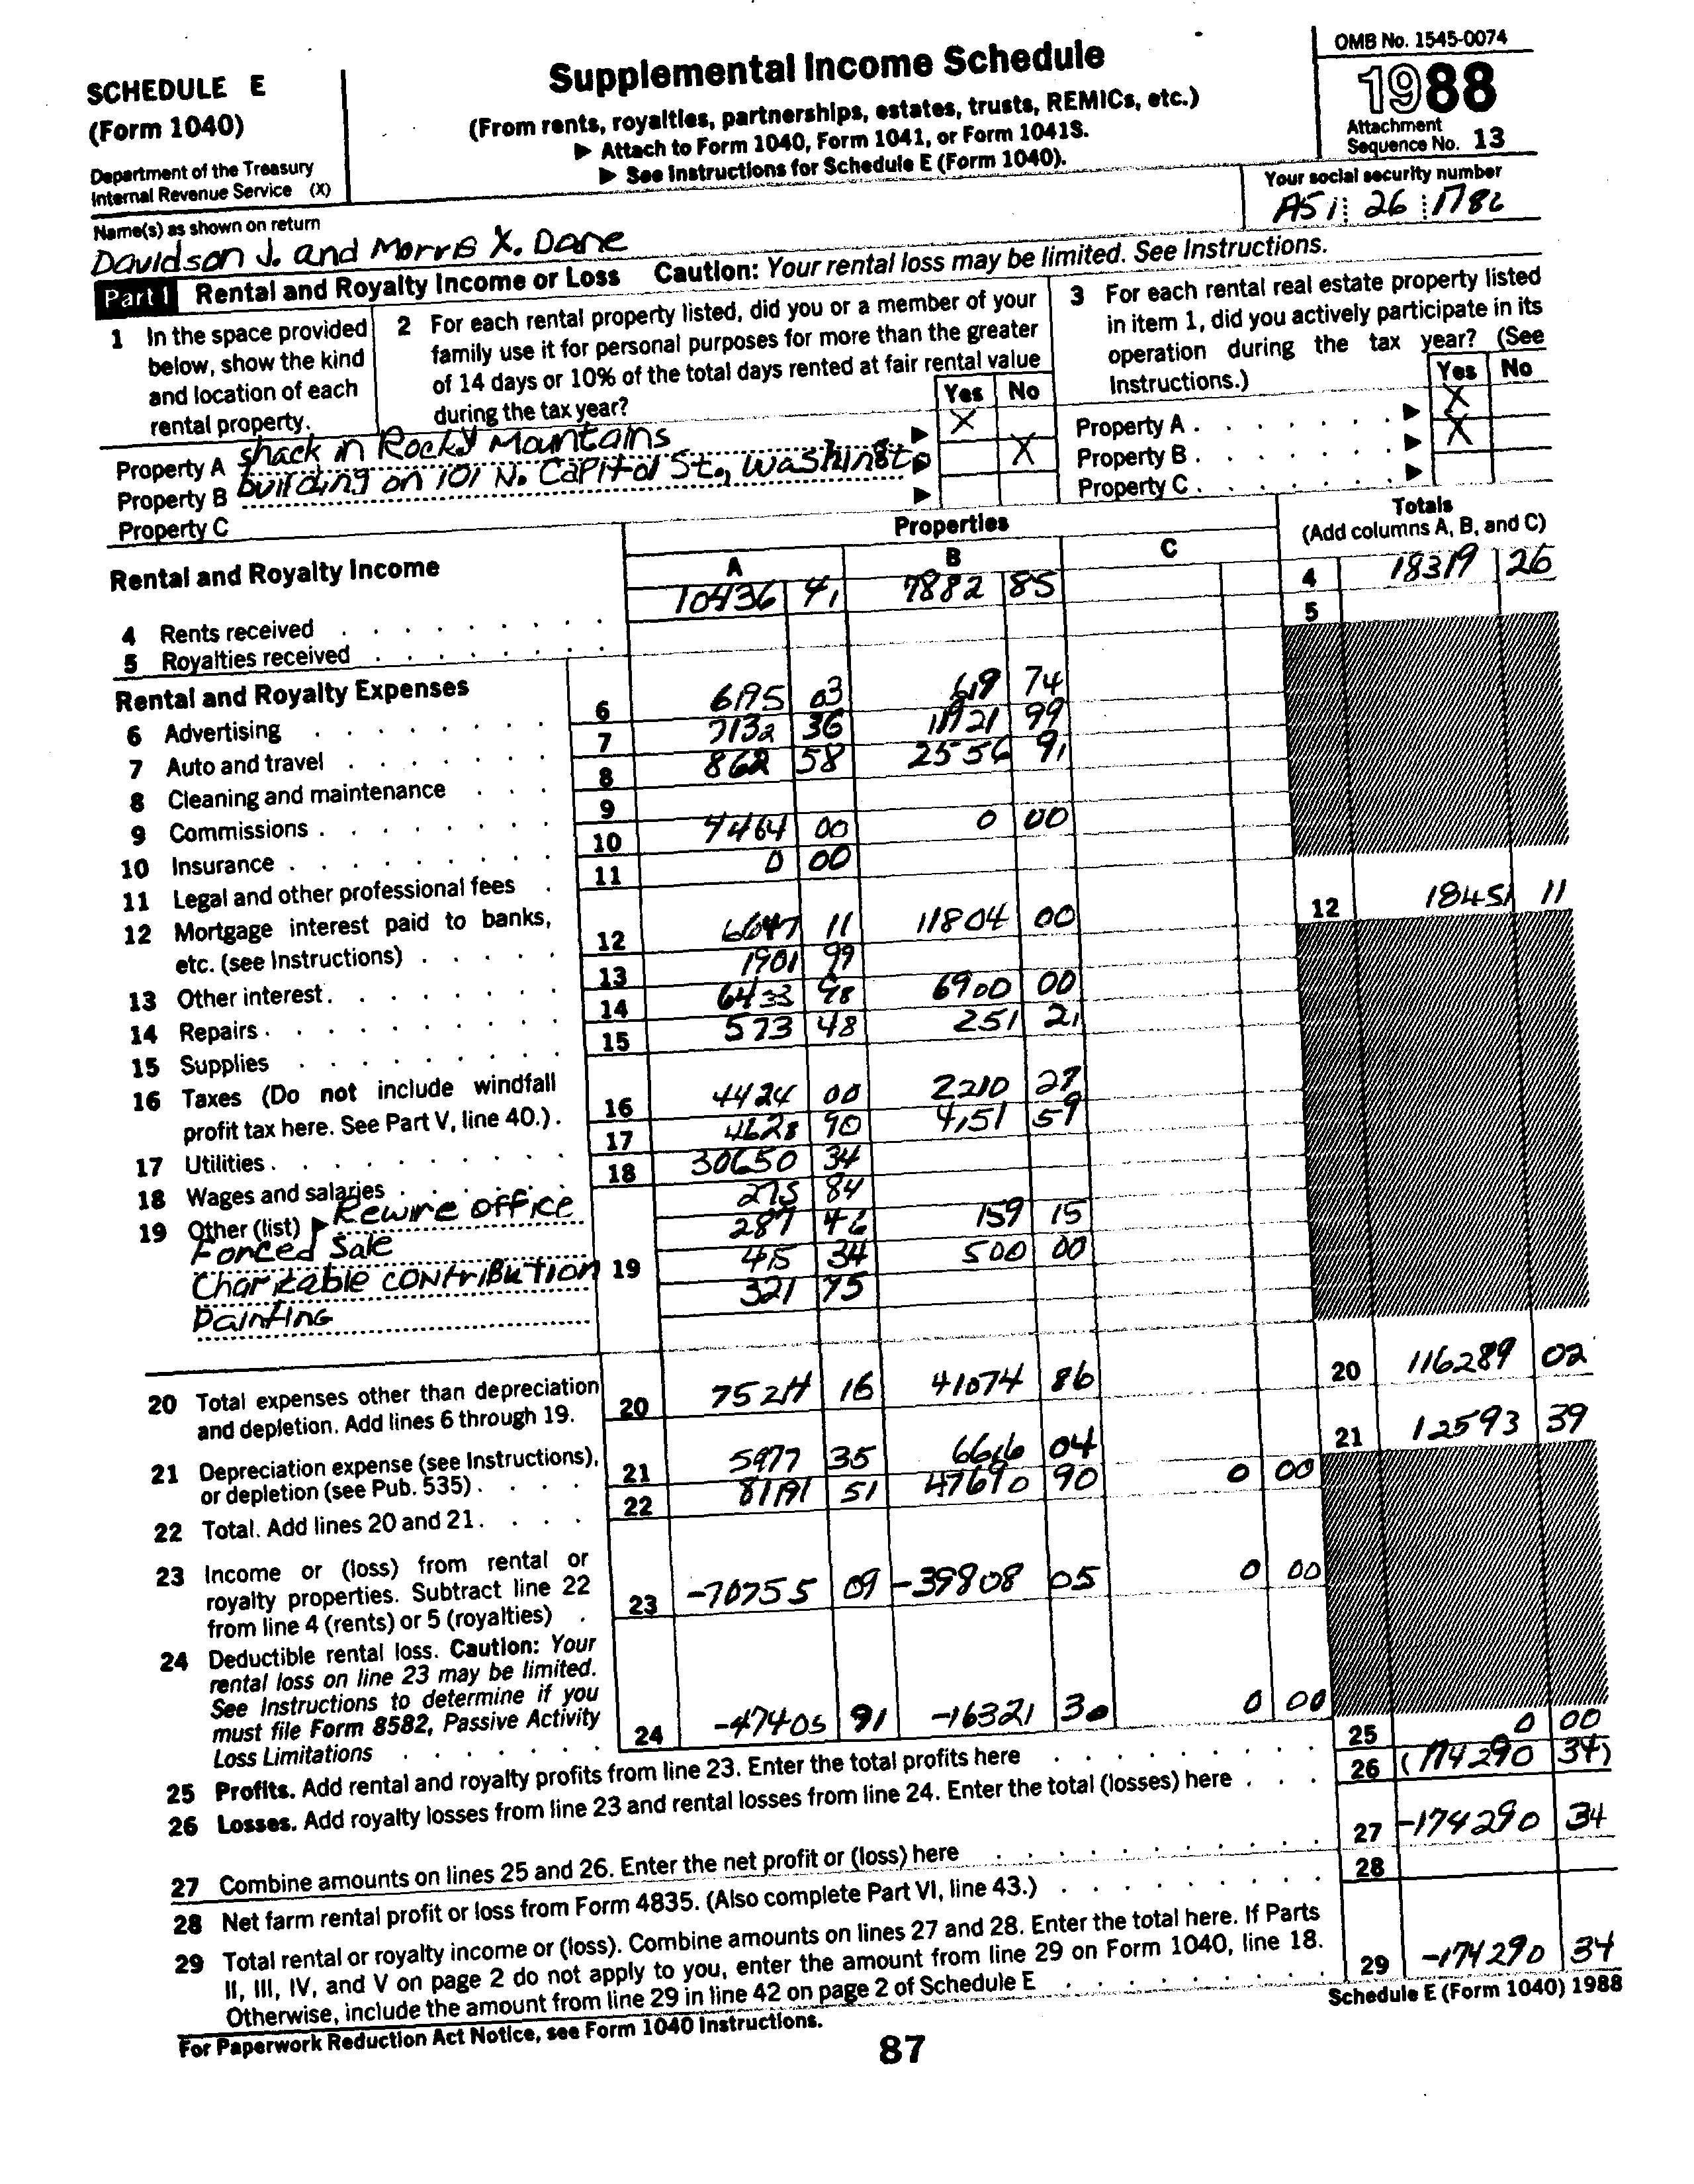 SCHEDULE E
(Form 1040)
Department of the Treasury
Internal Revenue Service (X)
Supplemental Income Schedule
(From rents, royalties, partnerships, estates, trusts, REMICs, etc.)
▶ Attach to Form 1040, Form 1041, or Form 1041S.
▶ See Instructions for Schedule E (Form 1040).
OMB No. 1545-0074
1988
Attachment
Sequence No. 13
Name(s) as shown on return
Davidson J. and Morris X. Dane
Your social security number
26 1782
Part I Rental and Royalty Income or Loss Caution: Your rental loss may be limited. See Instructions.
1 In the space provided
below, show the kind
and location of each
rental property.
2 For each rental property listed, did you or a member of your
family use it for personal purposes for more than the greater
of 14 days or 10% of the total days rented at fair rental value
during the tax year?
Yes No
3 For each rental real estate property listed
in item 1, did you actively participate in its
operation during the tax year? (See
Instructions.)
Yes No
Property A shack in Rocky Mountains ▶ X
Property B building on 101 N. Capitol St., Washingto ▶ X
Property C ▶
Property A . . . . . . . ▶ X
Property B . . . . . . . ▶ X
Property C . . . . . . . ▶
Rental and Royalty Income
Properties
A B C
Totals
(Add columns A, B, and C)
4 Rents received 10436 41 7882 85 4 18319 26
5 Royalties received 5
Rental and Royalty Expenses
6 Advertising 6 6195 03 619 74
7 Auto and travel 7 7132 36 11921 99
8 Cleaning and maintenance 8 862 58 2556 91
9 Commissions 9
10 Insurance 10 4464 00 0 00
11 Legal and other professional fees 11 0 00
12 Mortgage interest paid to banks,
etc. (see Instructions) 12 6647 11 11804 00 12 18451 11
13 Other interest 13 1901 99
14 Repairs 14 6433 98 6900 00
15 Supplies 15 573 48 251 21
16 Taxes (Do not include windfall
profit tax here. See Part V, line 40.) . 16 4424 00 2210 27
17 Utilities 17 4628 90 4151 59
18 Wages and salaries 18 30650 34
19 Other (list) ▶ Rewire office 275 84
Forced Sale 287 46 159 15
Charitable contribution 19 415 34 500 00
Painting 321 75
20 Total expenses other than depreciation
and depletion. Add lines 6 through 19. 20 75214 16 41074 86 20 116289 02
21 Depreciation expense (see Instructions),
or depletion (see Pub. 535) 21 5977 35 6616 04 21 12593 39
22 Total. Add lines 20 and 21 22 81191 51 47690 90 0 00
23 Income or (loss) from rental or
royalty properties. Subtract line 22
from line 4 (rents) or 5 (royalties) . 23 -70755 09 -39808 05 0 00
24 Deductible rental loss. Caution: Your
rental loss on line 23 may be limited.
See Instructions to determine if you
must file Form 8582, Passive Activity
Loss Limitations 24 -47405 91 -16321 30 0 00
25 Profits. Add rental and royalty profits from line 23. Enter the total profits here 25 0 00
26 Losses. Add royalty losses from line 23 and rental losses from line 24. Enter the total (losses) here . . . 26 (174290 34)
27 Combine amounts on lines 25 and 26. Enter the net profit or (loss) here 27 -174290 34
28 Net farm rental profit or loss from Form 4835. (Also complete Part VI, line 43.) 28
29 Total rental or royalty income or (loss). Combine amounts on lines 27 and 28. Enter the total here. If Parts
II, III, IV, and V on page 2 do not apply to you, enter the amount from line 29 on Form 1040, line 18.
Otherwise, include the amount from line 29 in line 42 on page 2 of Schedule E 29 -174290 34
For Paperwork Reduction Act Notice, see Form 1040 Instructions.
Schedule E (Form 1040) 1988
87